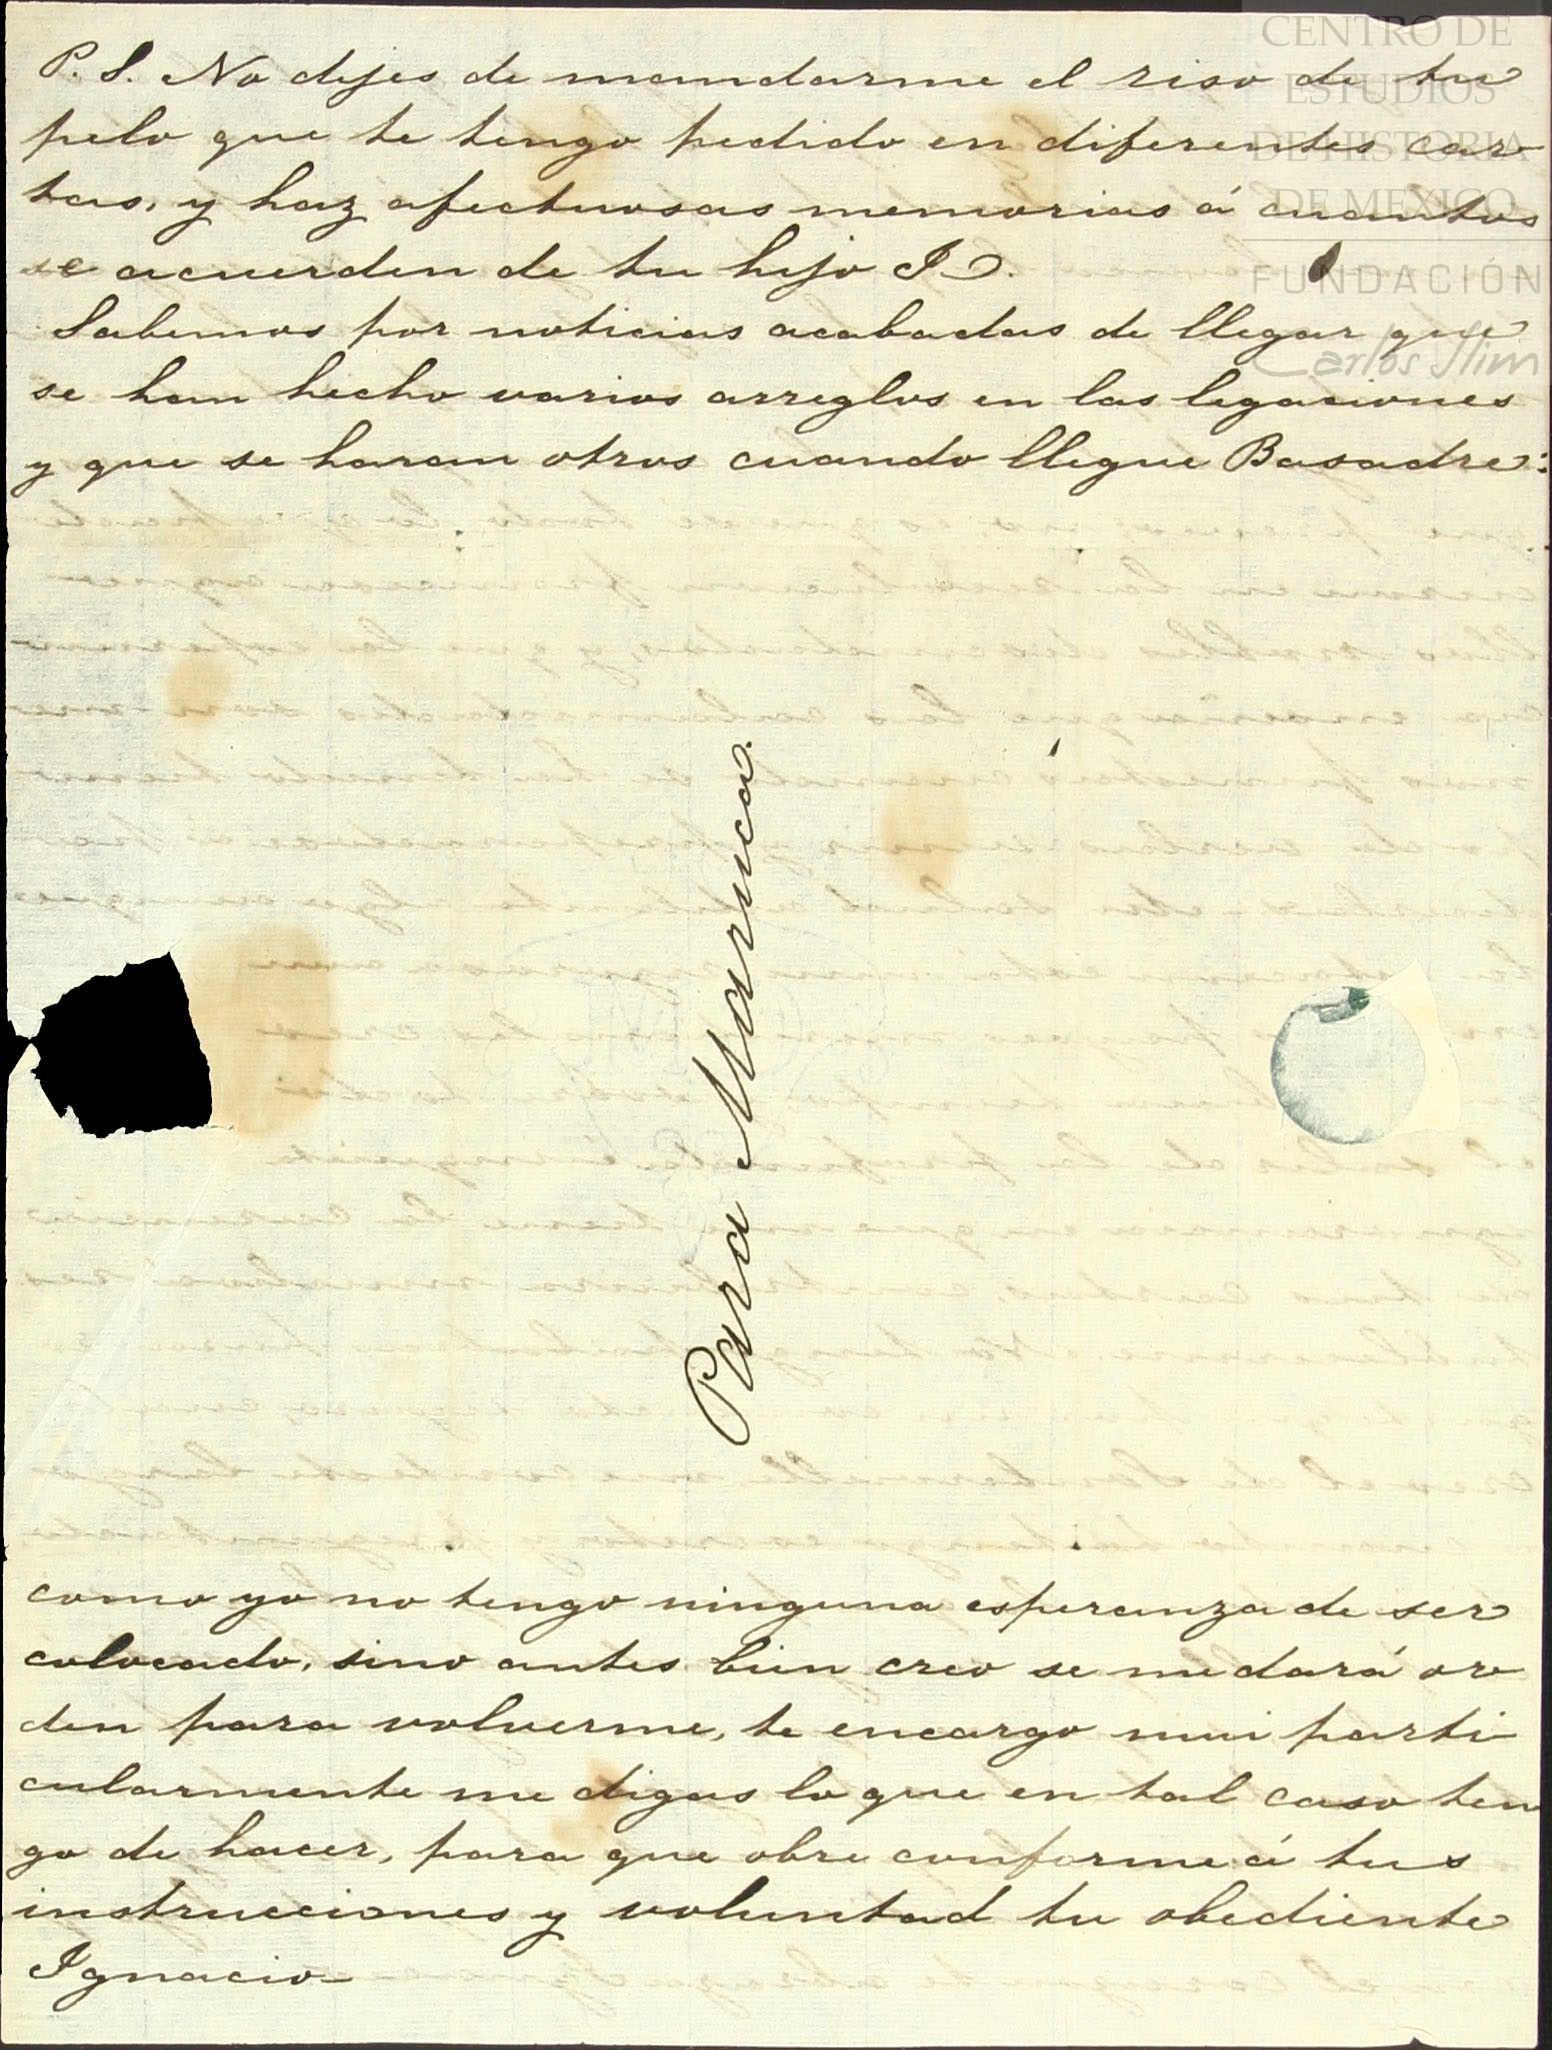 P. S. No dejes de mandarme el riso de tu
pelo que te tengo pedido en diferentes car
tas, y haz afectuosas memorias á cuantos
se acuerden de tu hijo I.
Sabemos por noticias acabadas de llegar que
se han hecho varios arreglos en las legaciones
y que se haran otros cuando llegue Basadre:
Para Maruca.
como yo no tengo ninguna esperanza de ser
colocado, sino antes bien creo se me dará or
den para volverme, te encargo mui parti
cularmente me digas lo que en tal caso ten
go de hacer, para que obre conforme á tus
instrucciones y voluntad tu obediente
Ignacio
CENTRO DE
ESTUDIOS
DE HISTORIA
DE MEXICO
FUNDACIÓN
Carlos Slim